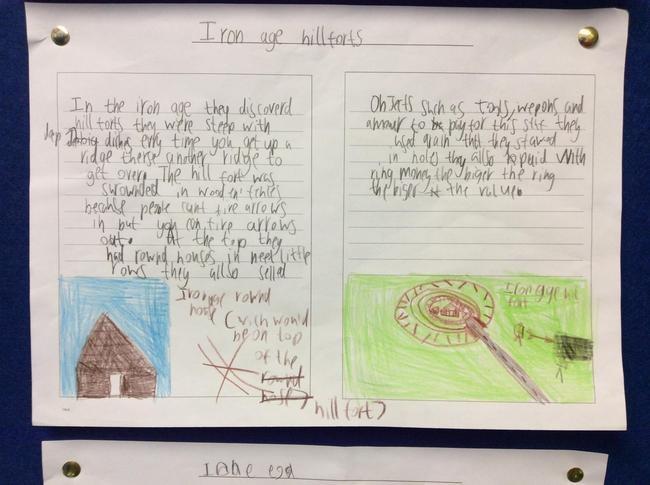 Iron age hillforts
In the iron age they discoverd
hill forts they were steep with
dep diches evry time you get up a
ridge therse another ridge to
get over. The hill fort was
surownded in wooden
because people cant fire arrows
in but you can fire arrows
out. At the top they
had round houses in neet little
rows they allso selled
Iron age round
house (wich would
be on top
of the
round
hill fort)
Objets such as tools, wepons and
amour to pay for this stuf they
used grain that they stawed
in holes they allso payid with
ring money the biger the ring
the biger the value.
Iron age
fort